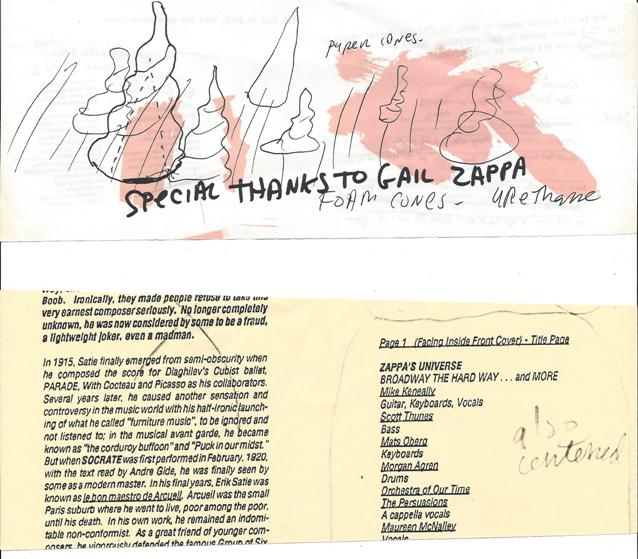 paper cones.
SPECIAL THANKS TO GAIL ZAPPA
FOAM CONES - URethane
Boob. Ironically, they made people refuse to take this
very earnest composer seriously. No longer completely
unknown, he was now considered by some to be a fraud,
a lightweight joker, even a madman.
In 1915, Satie finally emerged from semi-obscurity when
he composed the score for Diaghilev's Cubist ballet,
PARADE, With Cocteau and Picasso as his collaborators.
Several years later, he caused another sensation and
controversy in the music world with his half-ironic launch-
ing of what he called "furniture music", to be ignored and
not listened to; in the musical avant garde, he became
known as "the corduroy buffoon" and "Puck in our midst."
But when SOCRATE was first performed in February, 1920,
with the text read by Andre Gide, he was finally seen by
some as a modern master. In his final years, Erik Satie was
known as le bon maestro de Arcueil. Arcueil was the small
Paris suburb where he went to live, poor among the poor,
until his death. In his own work, he remained an indomi-
table non-conformist. As a great friend of younger com-
posers, he vigorously defended the famous Group of Six
Page 1 (Facing Inside Front Cover) - Title Page
ZAPPA'S UNIVERSE
BROADWAY THE HARD WAY . . . and MORE
Mike Keneally
Guitar, Keyboards, Vocals
Scott Thunes
Bass
Mats Oberg
Keyboards
Morgan Agren
Drums
Orchestra of Our Time
The Persuasions
A cappella vocals
Maureen McNalley
Vocals
also
centered